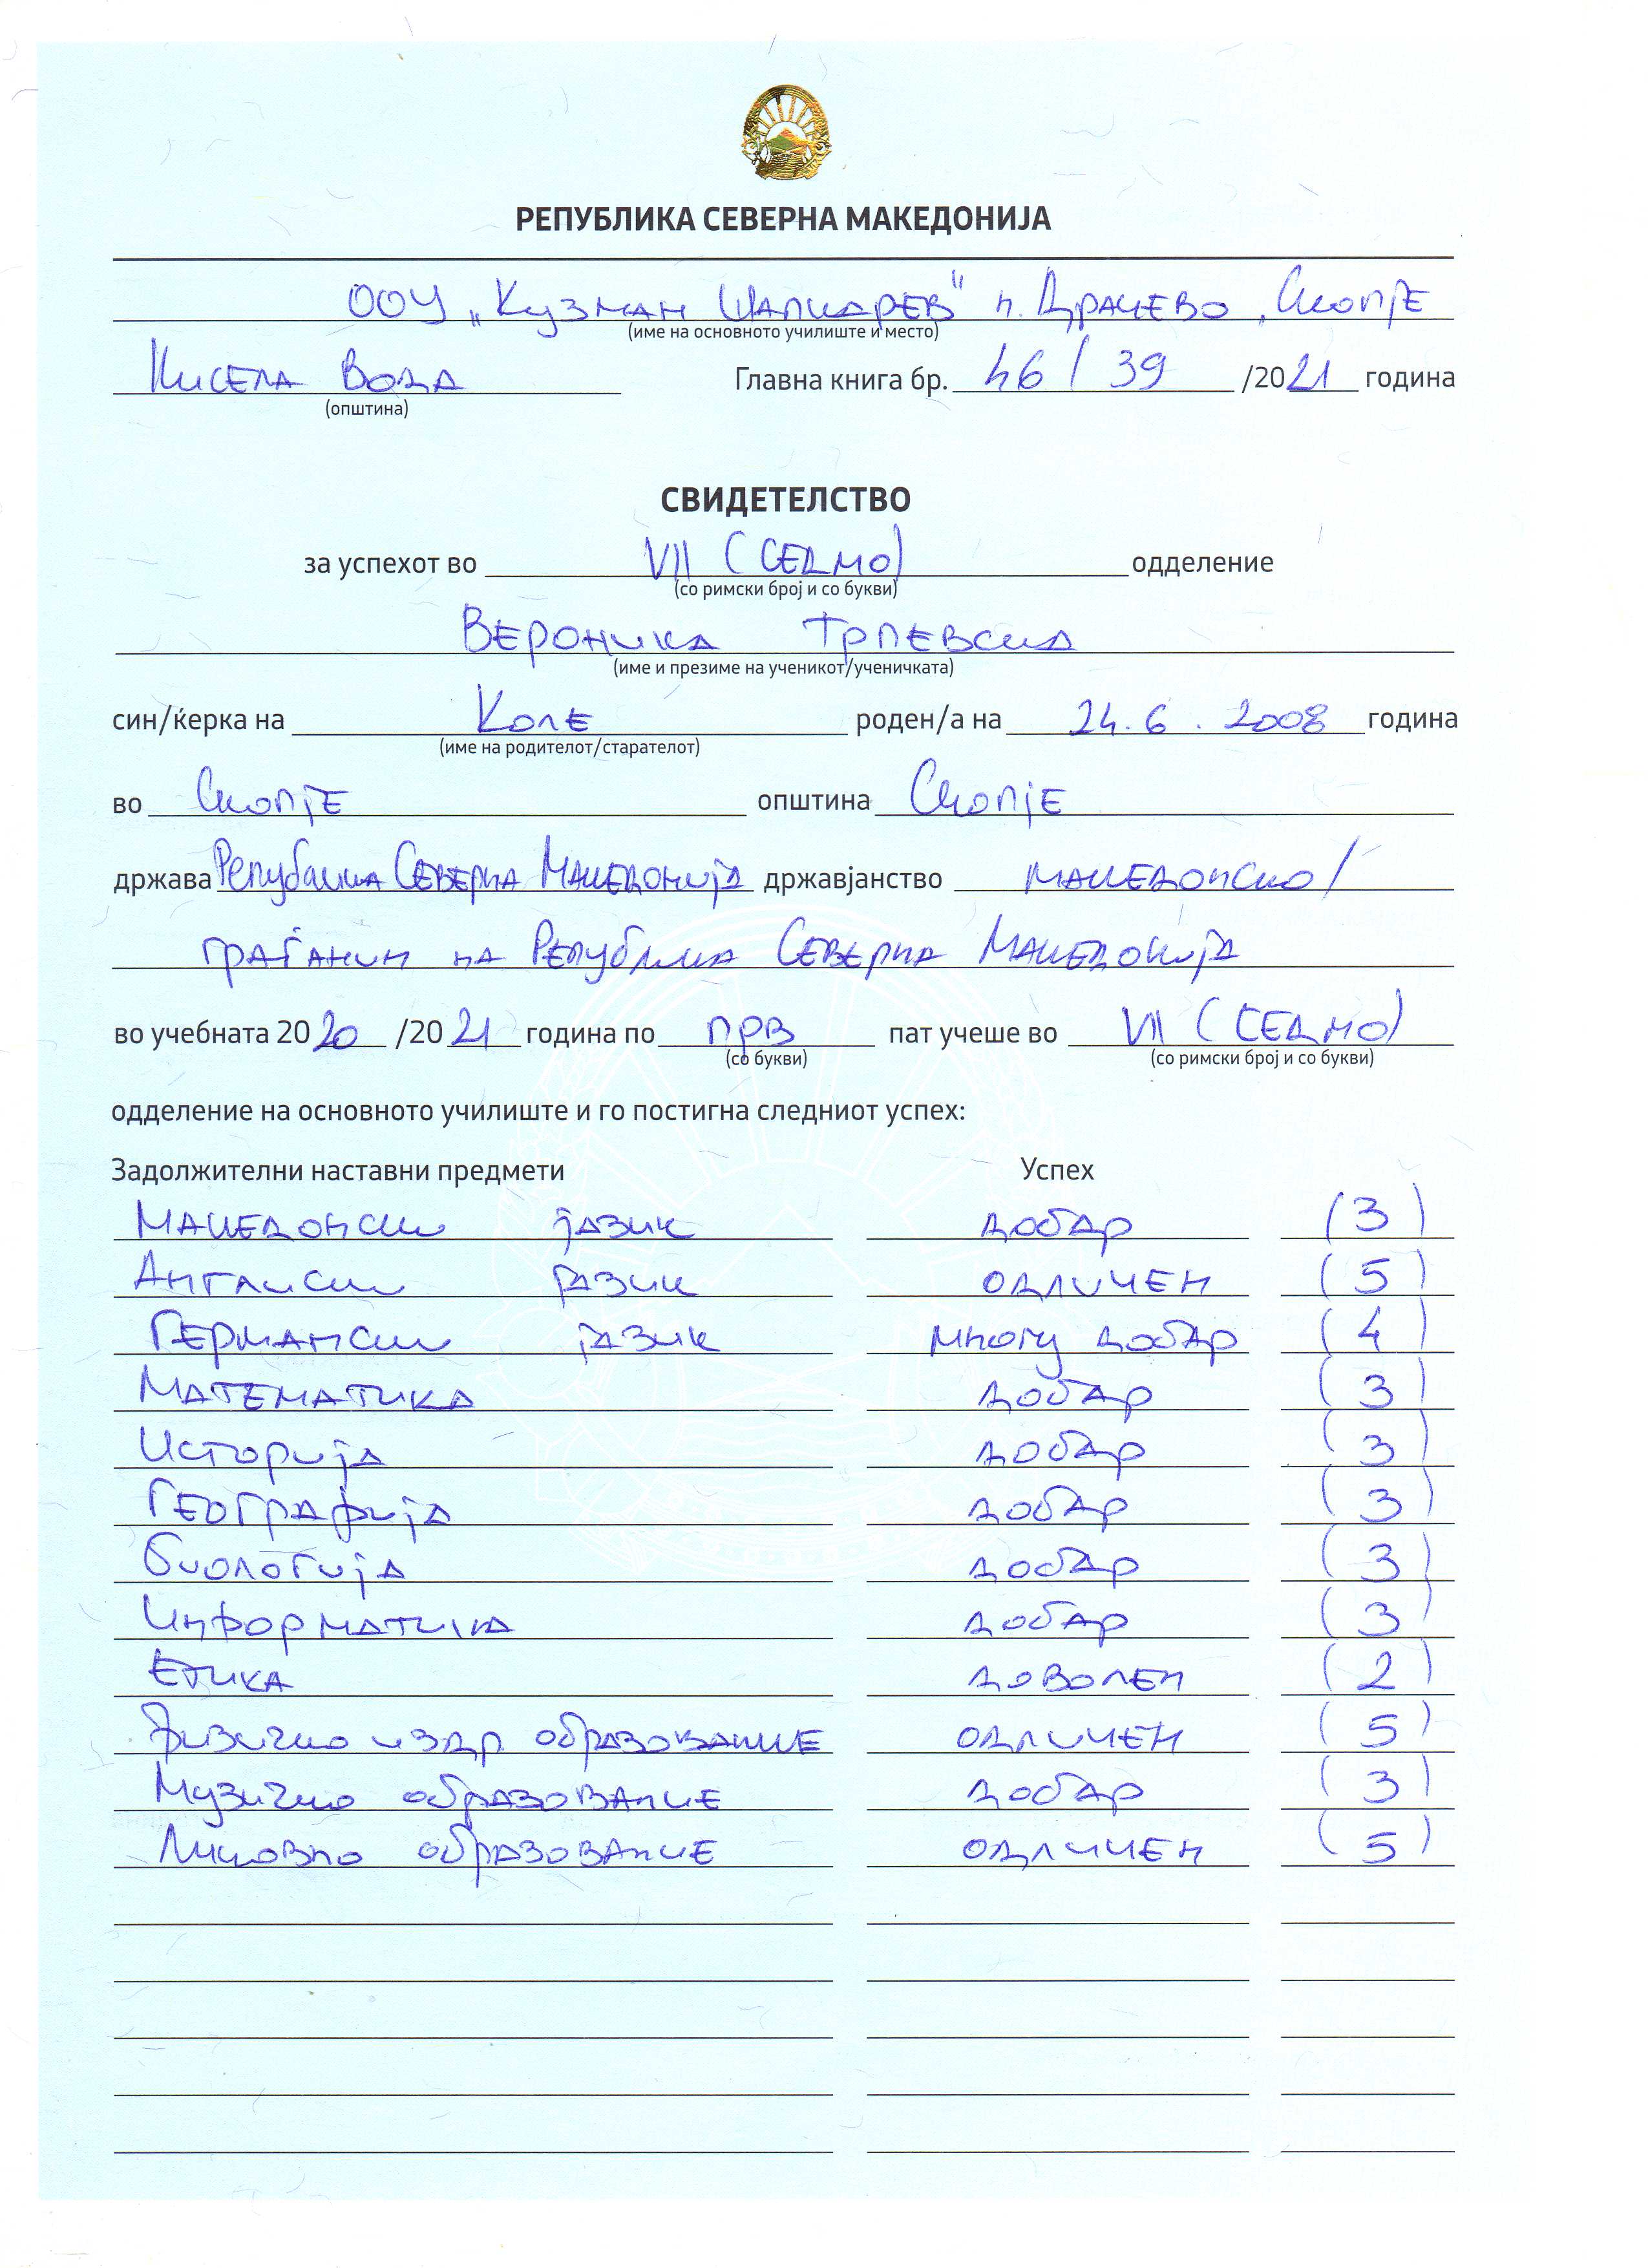 РЕПУБЛИКА СЕВЕРНА МАКЕДОНИЈА
ООУ „Кузман Шапкарев" н. Драчево, Скопје
(име на основното училиште и место)
Кисела Вода Главна книга бр. 46 / 39 /2021 година
(општина)
СВИДЕТЕЛСТВО
за успехот во VII (СЕДМО) одделение
(со римски број и со букви)
Вероника Трпевска
(име и презиме на ученикот/ученичката)
син/ќерка на Коле роден/а на 24.6.2008 година
(име на родителот/старателот)
во Скопје општина Скопје
држава Република Северна Македонија државјанство македонско/
граѓанин на Република Северна Македонија
во учебната 2020 /2021 година по прв пат учеше во VII (СЕДМО)
(со букви) (со римски број и со букви)
одделение на основното училиште и го постигна следниот успех:
Задолжителни наставни предмети Успех
Македонски јазик добар (3)
Англиски јазик одличен (5)
Германски јазик многу добар (4)
Математика добар (3)
Историја добар (3)
Географија добар (3)
Биологија добар (3)
Информатика добар (3)
Етика доволен (2)
Физичко и здр. образование одличен (5)
Музичко образование добар (3)
Ликовно образование одличен (5)